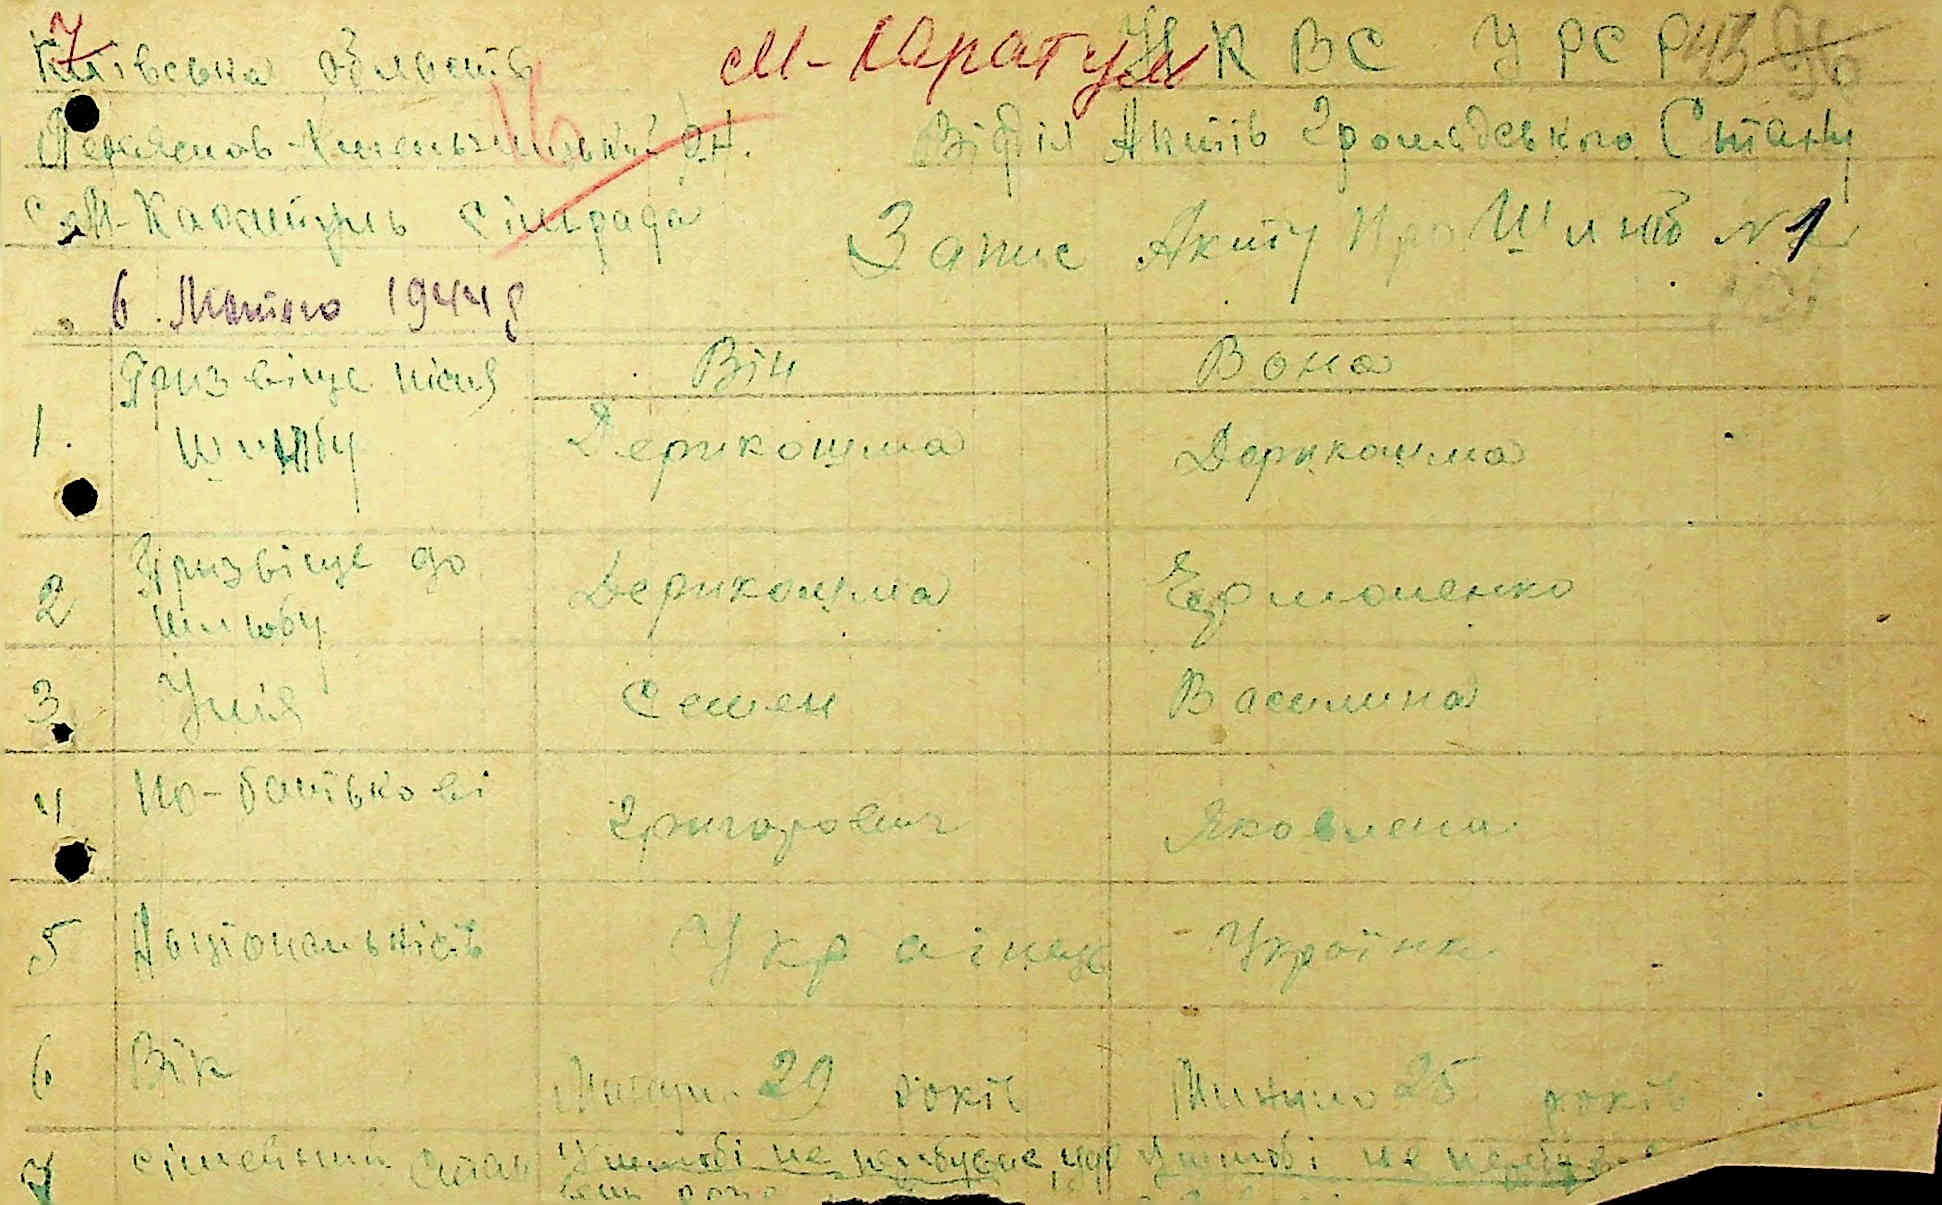 7
м-Каратуль
Н К В С У Р С Р 43
Київська область
Переяслав-Хмельницький р-н.
Відділ Актів Громадського Стану
с. М-Каратуль сільрада
Запис Акту Про Шлюб № 1
6 Лютого 1944 р
Він Вона
1. Призвіще після шлюбу Дерикошма Дерикошма
2 Призвіще до шлюбу Дерикошма
3 Імія Семен Василина
4 По-батькові Григорович Яковлена
5 Національність Українець Українка
6 Вік Минуло 29 років Минуло 25 років
7 Сімейний стан У шлюбі не перебував У шлюбі не